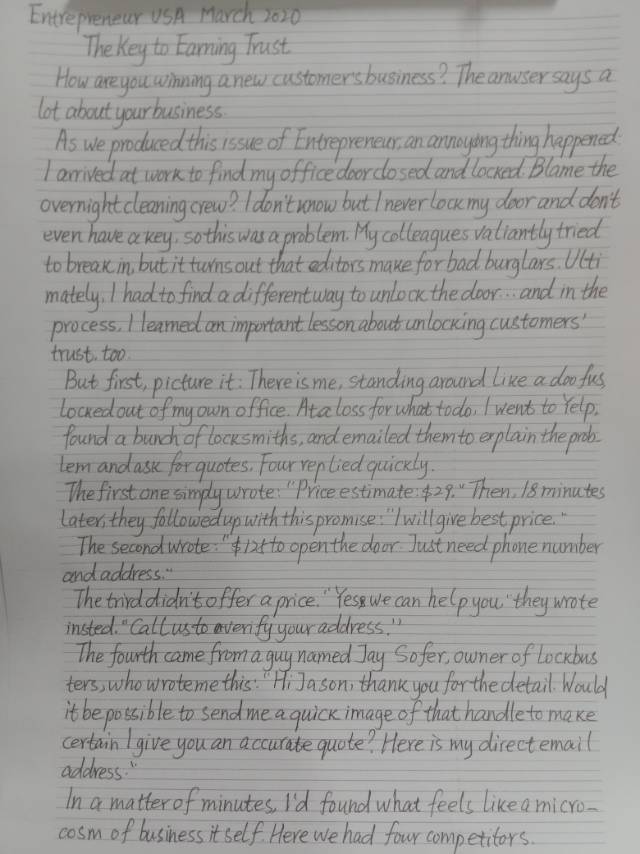 Entrepreneur USA March 2020
The Key to Earning Trust
How are you winning a new customer's business? The anwser says a
lot about your business.
As we produced this issue of Entrepreneur, an annoying thing happened:
I arrived at work to find my office door closed and locked. Blame the
overnight cleaning crew? I don't know but I never lock my door and don't
even have a key, so this was a problem. My colleagues valiantly tried
to break in, but it turns out that editors make for bad burglars. Ulti
mately, I had to find a different way to unlock the door... and in the
process, I learned an important lesson about unlocking customers'
trust, too.
But first, picture it: There is me, standing around like a doofus,
locked out of my own office. At a loss for what to do, I went to Yelp,
found a bunch of locksmiths, and emailed them to explain the prob-
lem and ask for quotes. Four replied quickly.
The first one simply wrote: "Price estimate: $29." Then, 18 minutes
later, they followed up with this promise: "I will give best price."
The second wrote: "$125 to open the door. Just need phone number
and address."
The trird didn't offer a price. "Yes, we can help you," they wrote
insted. "Call us to verify your address."
The fourth came from a guy named Jay Sofer, owner of Lockbus
ters, who wrote me this: "Hi Jason, thank you for the detail. Would
it be possible to send me a quick image of that handle to make
certain I give you an accurate quote? Here is my direct email
address."
In a matter of minutes, I'd found what feels like a micro-
cosm of business itself. Here we had four competitors.